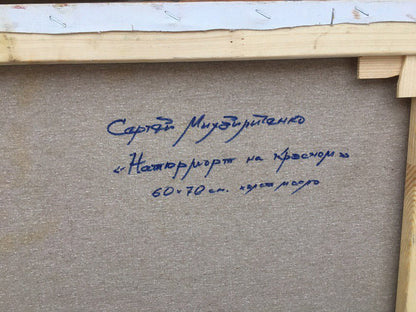 Сергей
«Натюрморт на красном»
60×70 см. холст масло